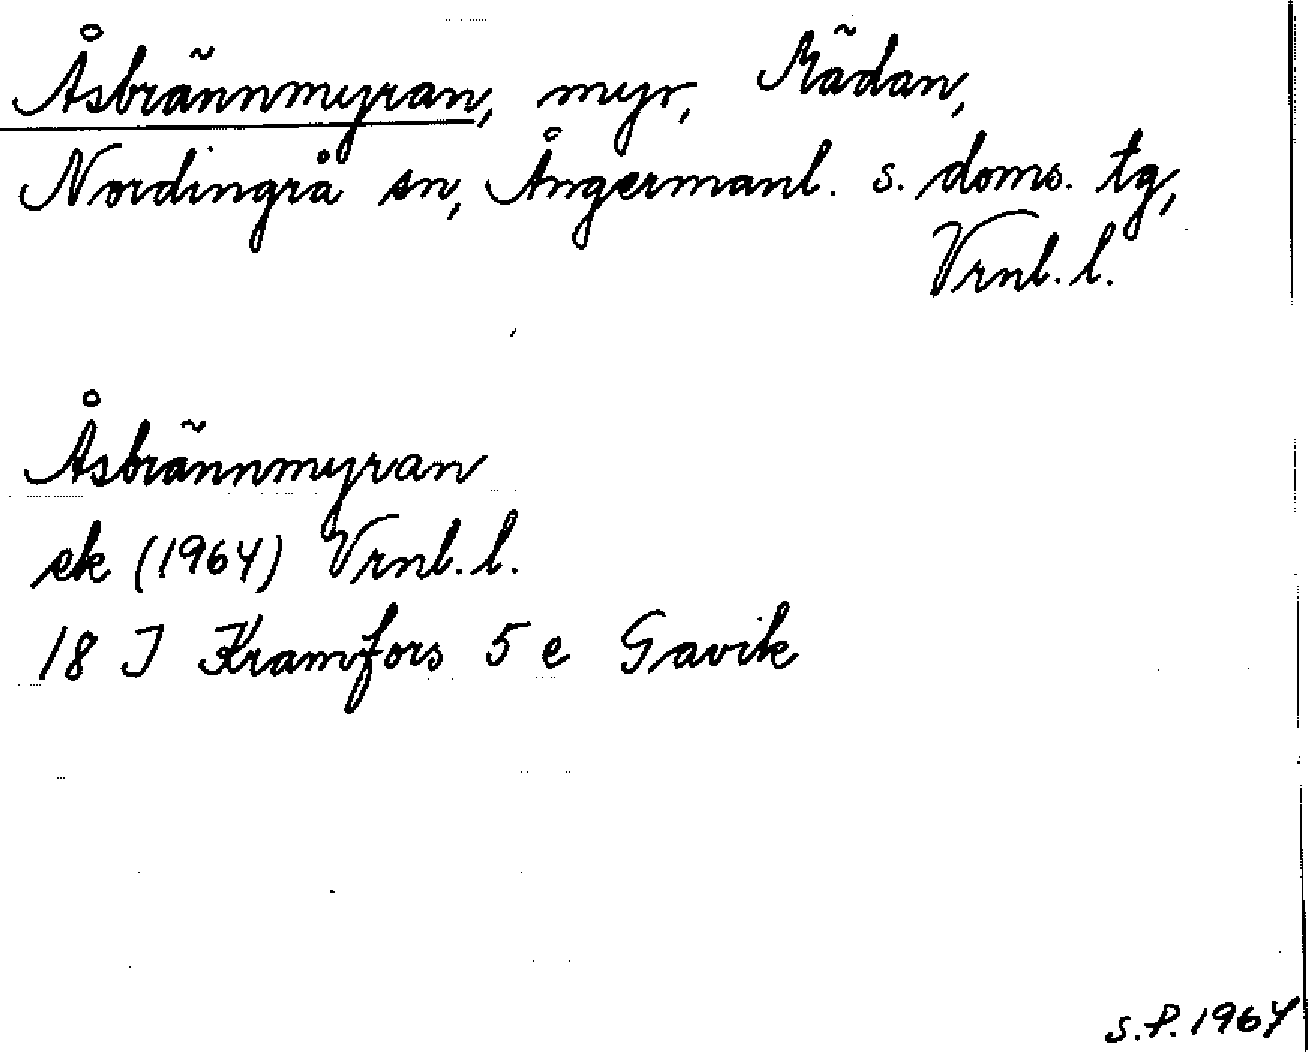 Åsbrännmyran, myr, Rädan,
Nordingrå sn, Ångermanl. s. doms. tg,
Vrnl. l.
Åsbrännmyran
ek (1964) Vrnl. l.
18 I Kramfors 5 e Gavik
S.P. 1964